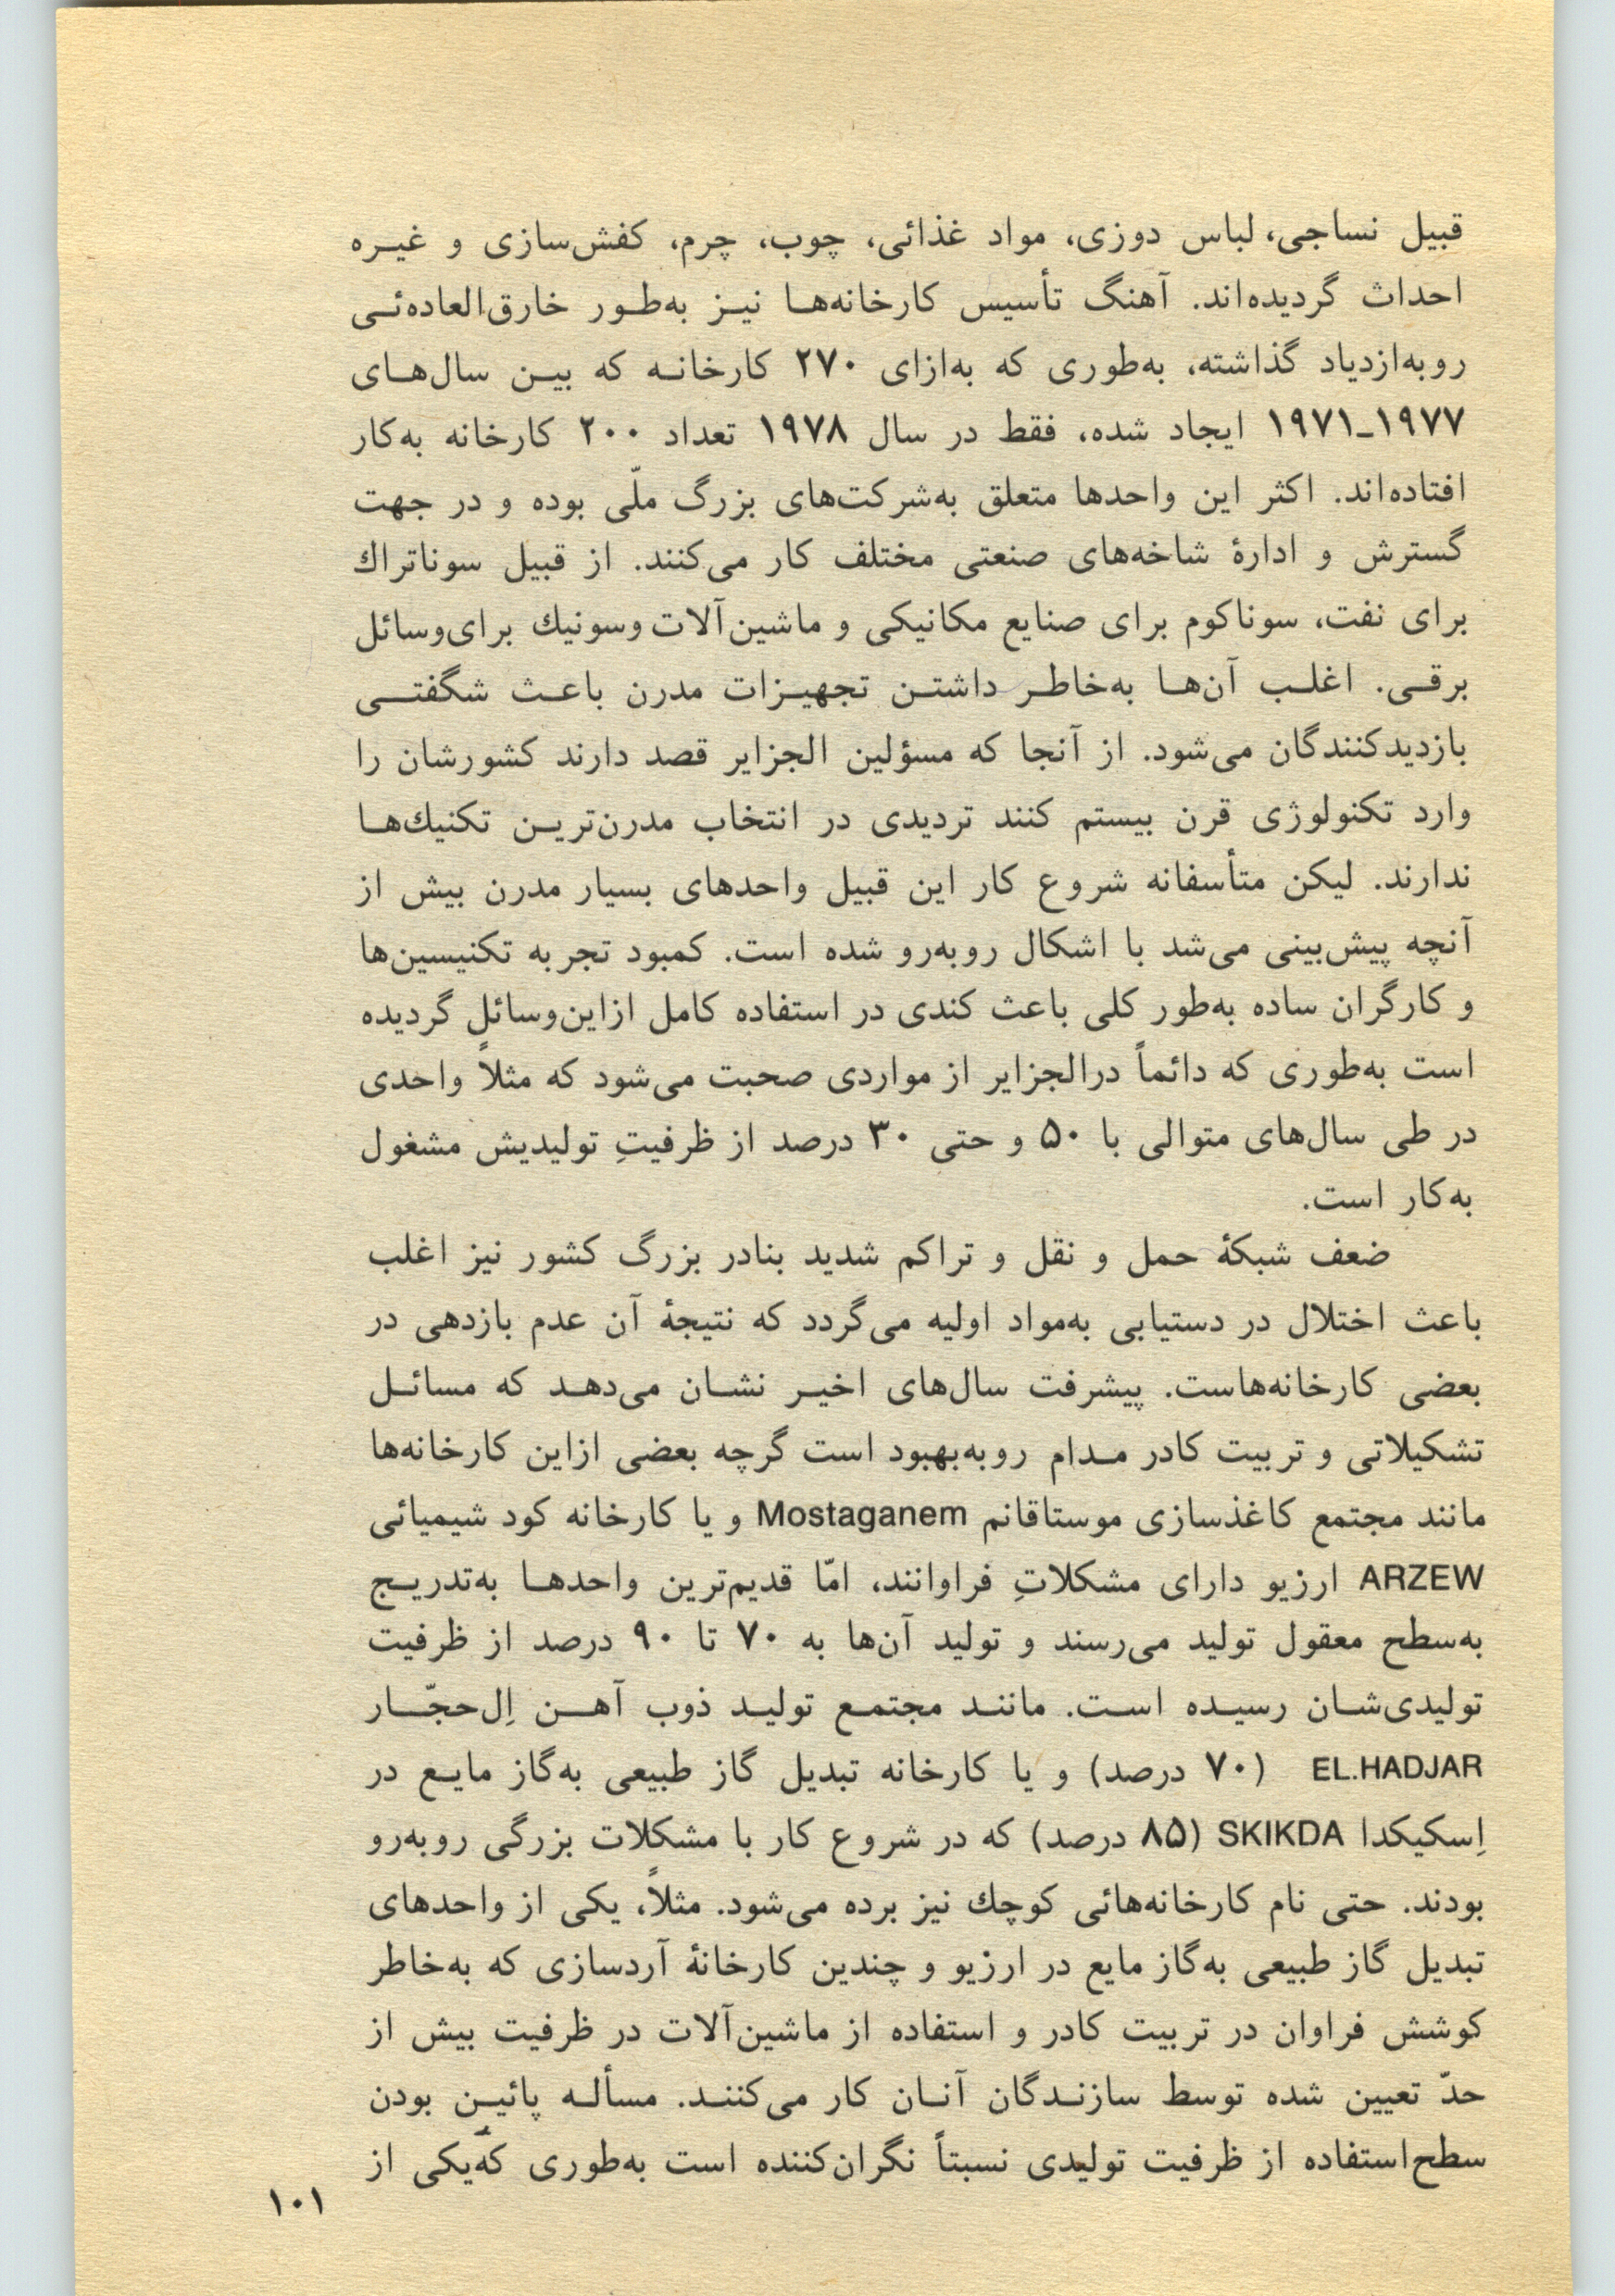 قبیل نساجی، لباس دوزی، مواد غذائی، چوب، چرم، کفش‌سازی و غیـره
احداث گردیده‌اند. آهنگ تأسیس کارخانه‌هـا نیـز به‌طـور خارق‌العاده‌ئـی
روبه‌ازدیاد گذاشته، به‌طوری که به‌ازای ۲۷۰ کارخانـه که بیـن سال‌هـای
۱۹۷۷ـ۱۹۷۱ ایجاد شده، فقط در سال ۱۹۷۸ تعداد ۲۰۰ کارخانه به‌کار
افتاده‌اند. اکثر این واحدها متعلق به‌شرکت‌های بزرگ ملّی بوده و در جهت
گسترش و ادارهٔ شاخه‌های صنعتی مختلف کار می‌کنند. از قبیل سوناتراك
برای نفت، سوناکوم برای صنایع مکانیکی و ماشین‌آلات وسونیك برای‌وسائل
برقـی. اغلـب آن‌هـا به‌خاطـر داشتـن تجهیـزات مدرن باعـث شگفتـی
بازدیدکنندگان می‌شود. از آنجا که مسؤلین الجزایر قصد دارند کشورشان را
وارد تکنولوژی قرن بیستم کنند تردیدی در انتخاب مدرن‌تریـن تکنیك‌هـا
ندارند. لیکن متأسفانه شروع کار این قبیل واحدهای بسیار مدرن بیش از
آنچه پیش‌بینی می‌شد با اشکال روبه‌رو شده است. کمبود تجربه تکنیسین‌ها
و کارگران ساده به‌طور کلی باعث کندی در استفاده کامل ازاین‌وسائل گردیده
است به‌طوری که دائماً درالجزایر از مواردی صحبت می‌شود که مثلاً واحدی
در طی سال‌های متوالی با ۵۰ و حتی ۳۰ درصد از ظرفیتِ تولیدیش مشغول
به‌کار است.
ضعف شبکهٔ حمل و نقل و تراکم شدید بنادر بزرگ کشور نیز اغلب
باعث اختلال در دستیابی به‌مواد اولیه می‌گردد که نتیجهٔ آن عدم بازدهی در
بعضی کارخانه‌هاست. پیشرفت سال‌های اخیـر نشـان می‌دهـد که مسائـل
تشکیلاتی و تربیت کادر مـدام روبه‌بهبود است گرچه بعضی ازاین کارخانه‌ها
مانند مجتمع کاغذسازی موستاقانم Mostaganem و یا کارخانه کود شیمیائی
ARZEW ارزیو دارای مشکلاتِ فراوانند، امّا قدیم‌ترین واحدهـا به‌تدریـج
به‌سطح معقول تولید می‌رسند و تولید آن‌ها به ۷۰ تا ۹۰ درصد از ظرفیت
تولیدی‌شـان رسیـده اسـت. ماننـد مجتمـع تولیـد ذوب آهـن اِل‌حجّـار
EL.HADJAR (۷۰ درصد) و یا کارخانه تبدیل گاز طبیعی به‌گاز مایـع در
اِسکیکدا SKIKDA (۸۵ درصد) که در شروع کار با مشکلات بزرگی روبه‌رو
بودند. حتی نام کارخانه‌هائی کوچك نیز برده می‌شود. مثلاً، یکی از واحدهای
تبدیل گاز طبیعی به‌گاز مایع در ارزیو و چندین کارخانهٔ آردسازی که به‌خاطر
کوشش فراوان در تربیت کادر و استفاده از ماشین‌آلات در ظرفیت بیش از
حدّ تعیین شده توسط سازنـدگان آنـان کار می‌کننـد. مسألـه پائیـن بودن
سطح‌استفاده از ظرفیت تولیدی نسبتاً نگران‌کننده است به‌طوری که‌یکی از
۱۰۱